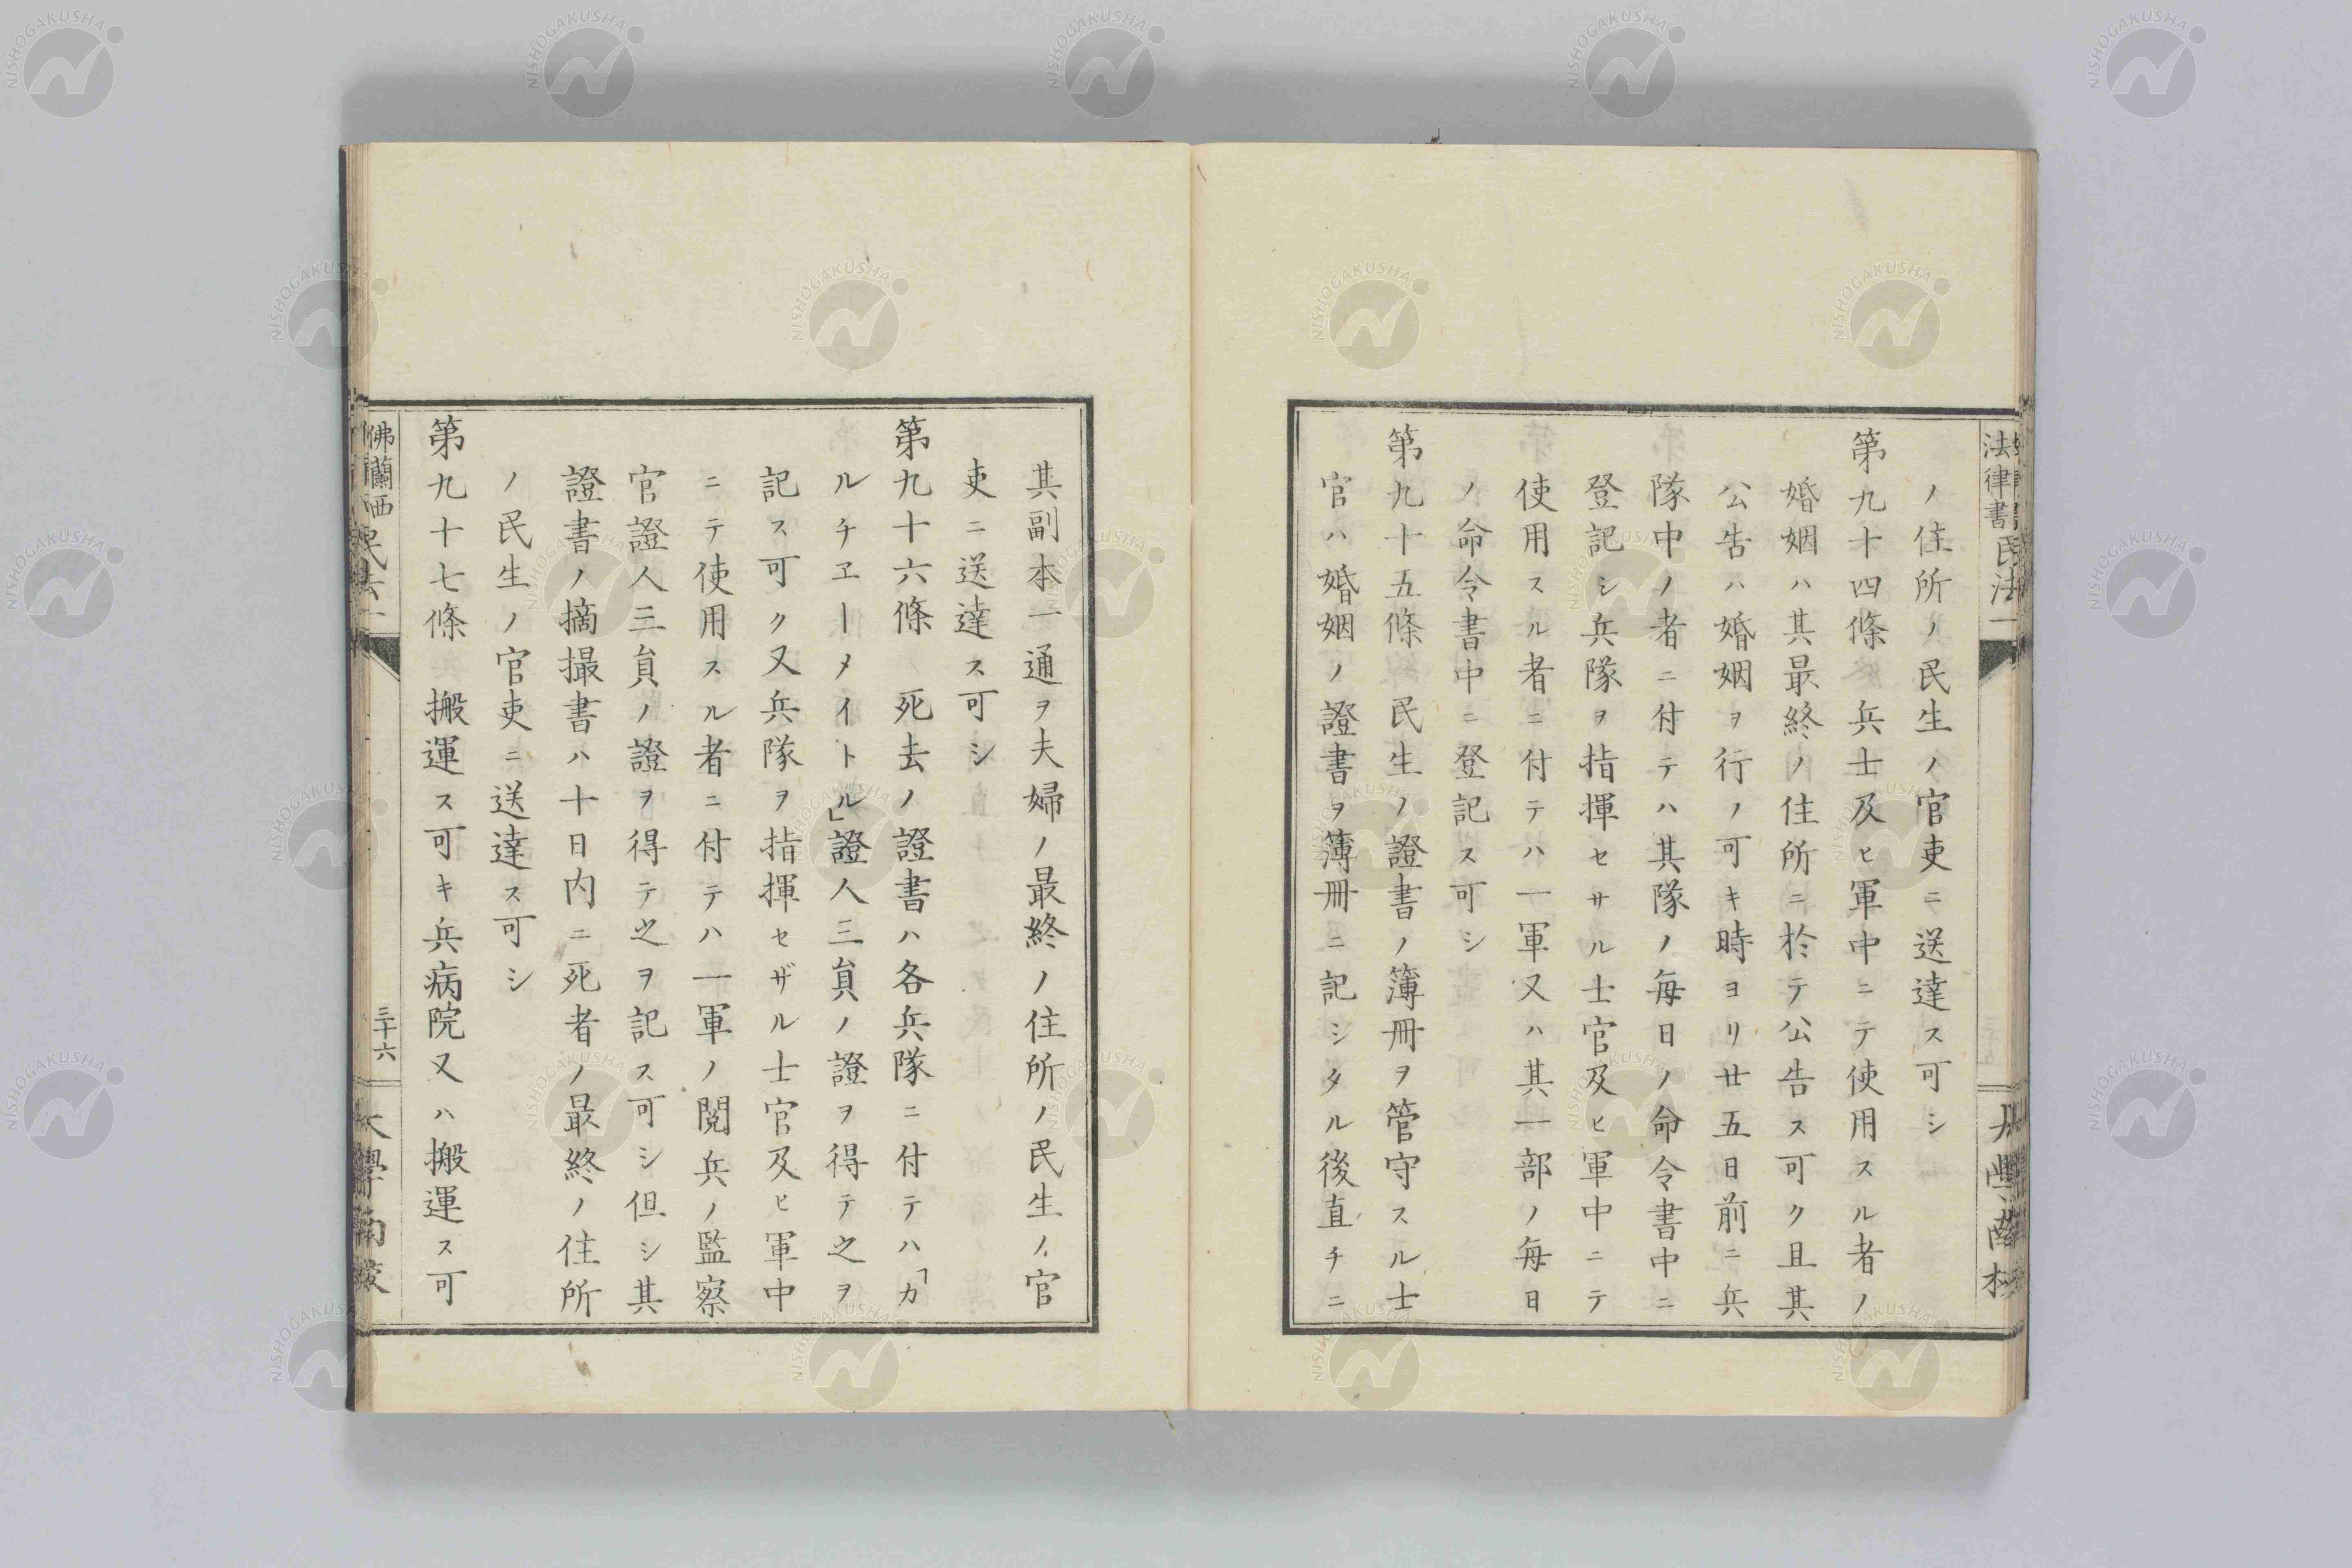 法律書民法一
ノ住所ノ民生ノ官吏ニ送達ス可シ
第九十四條 兵士及ヒ軍中ニテ使用スル者ノ
婚姻ハ其最終ノ住所ニ於テ公告ス可ク且其
公告ハ婚姻ヲ行ノ可キ時ヨリ廿五日前ニ兵
隊中ノ者ニ付テハ其隊ノ毎日ノ命令書中ニ
登記シ兵隊ヲ指揮セサル士官及ヒ軍中ニテ
使用スル者ニ付テハ一軍又ハ其一部ノ毎日
ノ命令書中ニ登記ス可シ
第九十五條 民生ノ證書ノ簿冊ヲ管守スル士
官ハ婚姻ノ證書ヲ簿冊ニ記シタル後直チニ
其副本一通ヲ夫婦ノ最終ノ住所ノ民生ノ官
吏ニ送達ス可シ
第九十六條 死去ノ證書ハ各兵隊ニ付テハ「カ
ルチヱーメイトル」證人三員ノ證ヲ得テ之ヲ
記ス可ク又兵隊ヲ指揮セザル士官及ヒ軍中
ニテ使用スル者ニ付テハ一軍ノ閲兵ノ監察
官證人三員ノ證ヲ得テ之ヲ記ス可シ但シ其
證書ノ摘撮書ハ十日内ニ死者ノ最終ノ住所
ノ民生ノ官吏ニ送達ス可シ
第九十七條 搬運ス可キ兵病院又ハ搬運ス可
佛蘭西民法一
三十六
大學南校
NISHOGAKUSHA